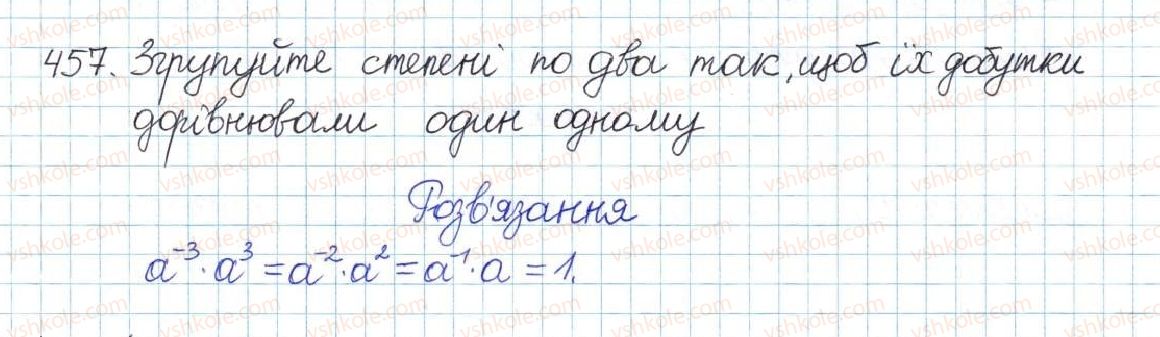 457. Згрупуйте степені по два так, щоб їх добутки
дорівнювали один одному
Розв'язання
a⁻³·a³=a⁻²·a²=a⁻¹·a=1.